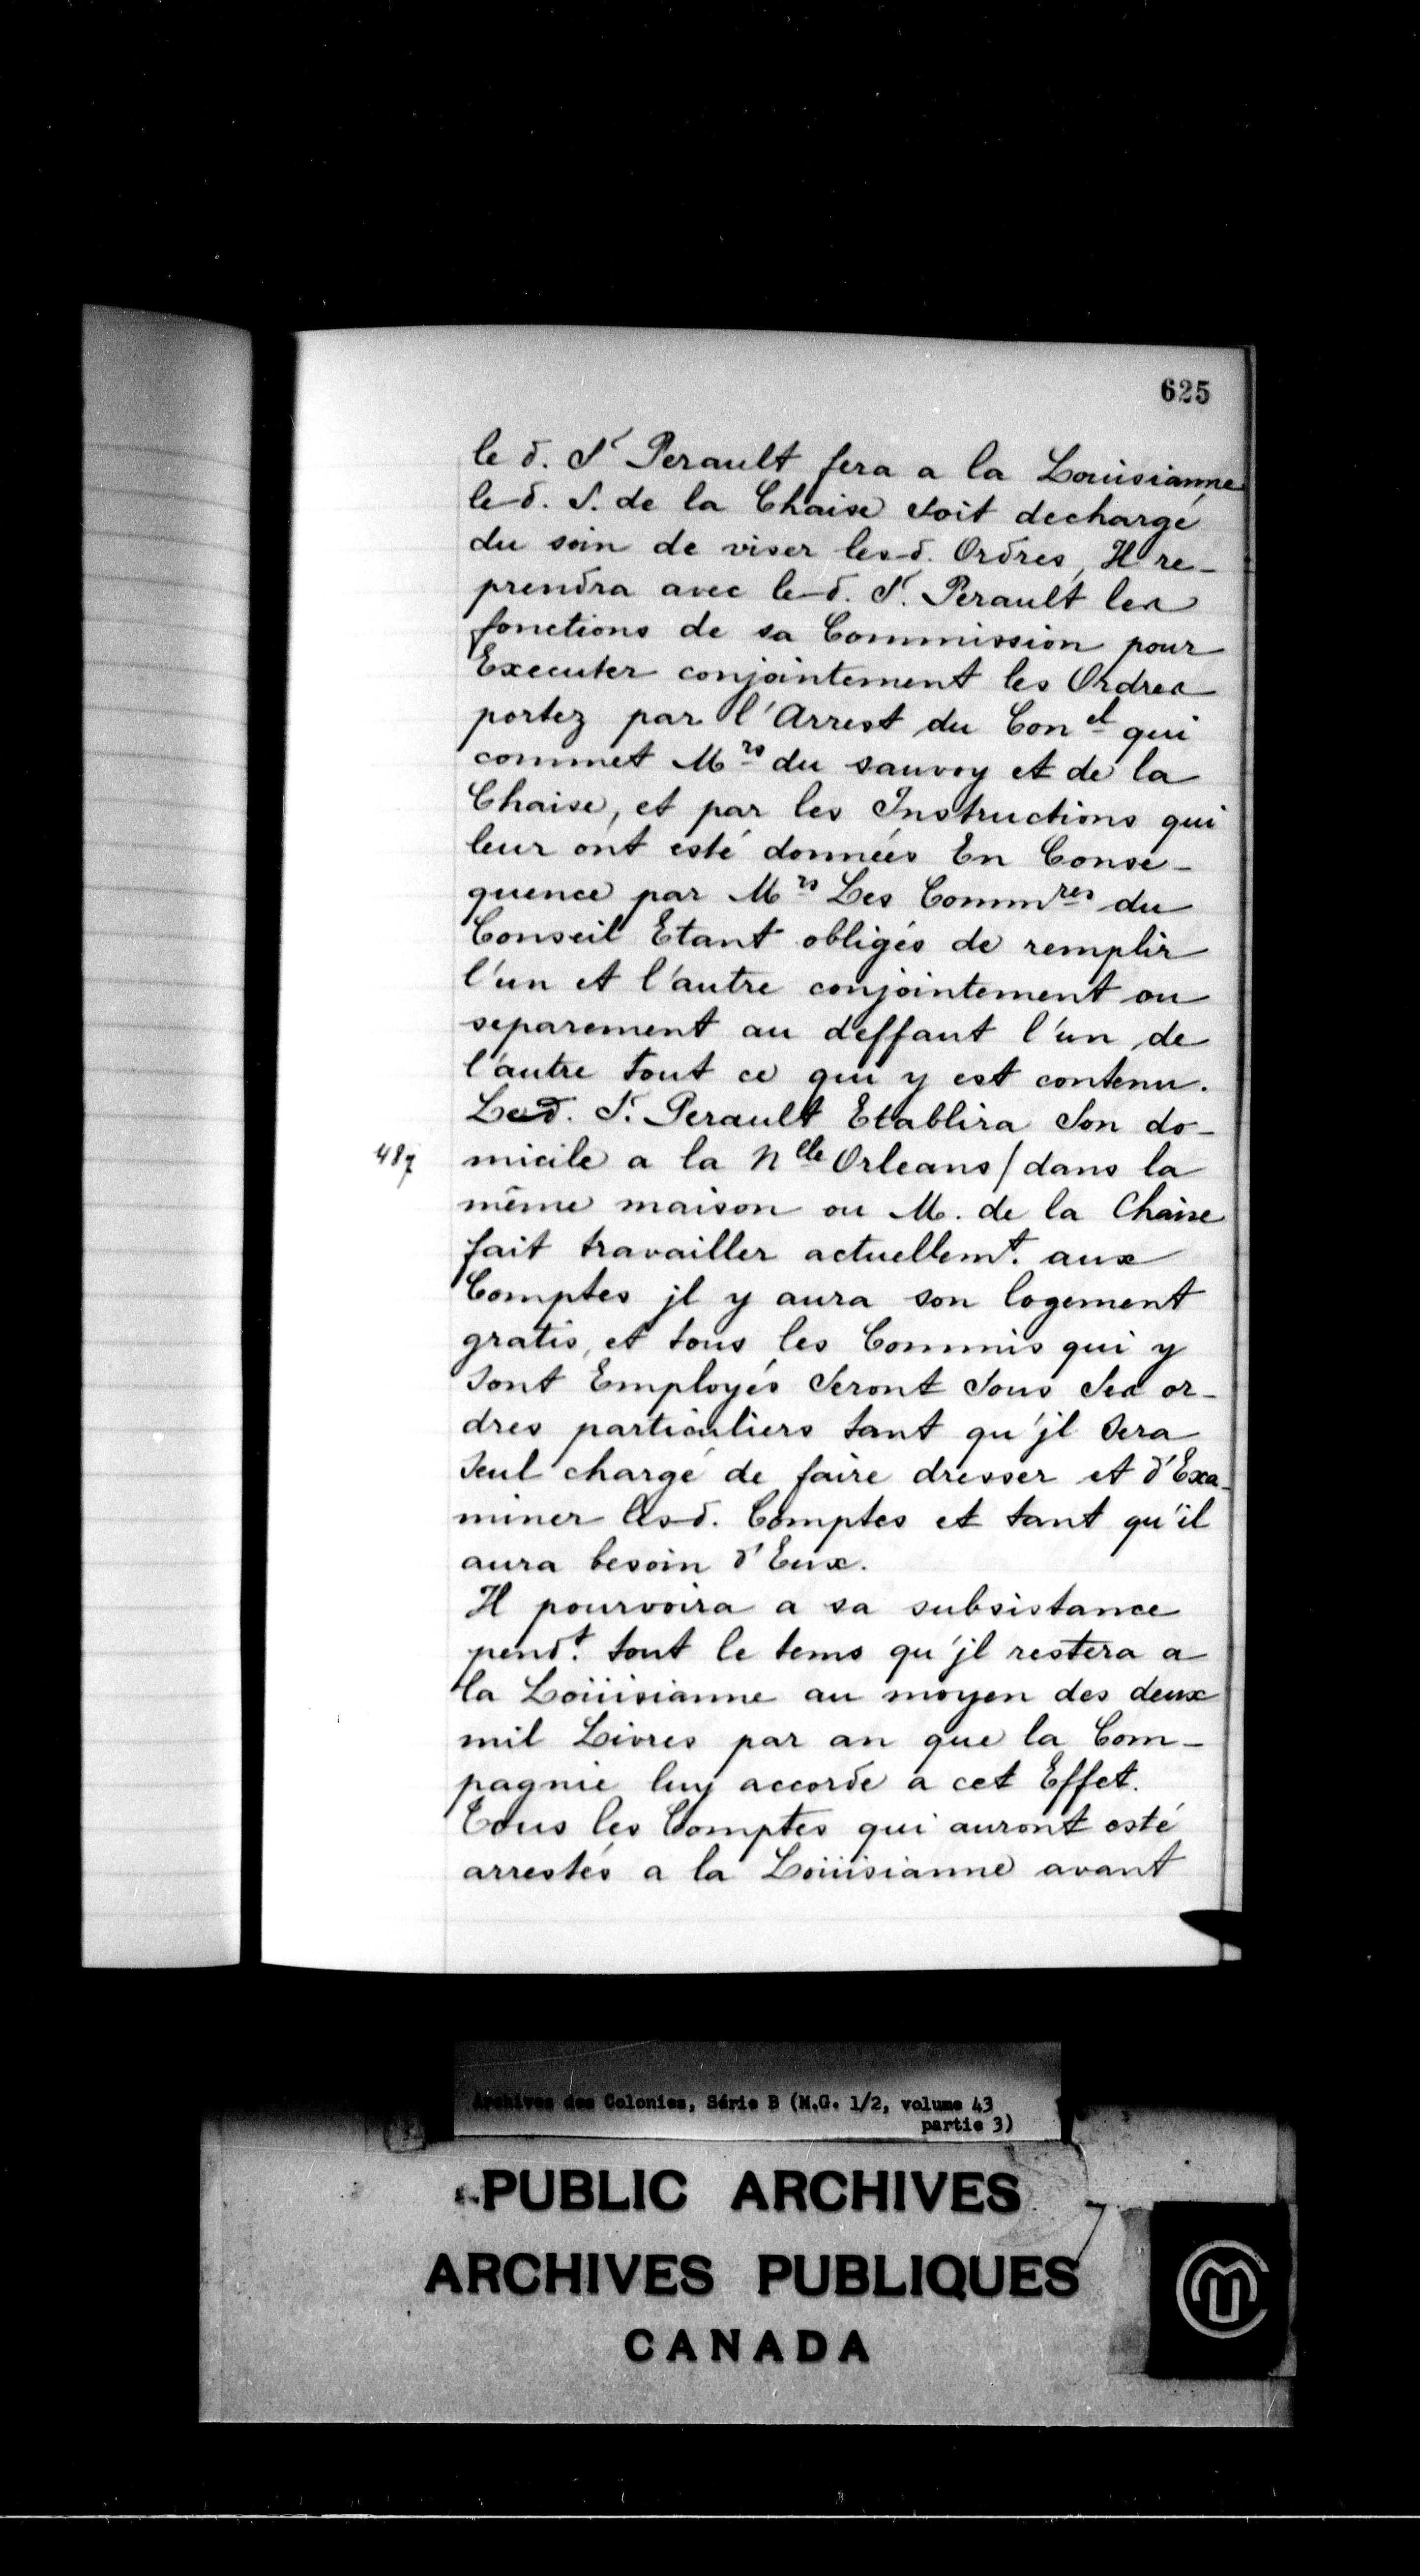 625
le d. Sr Perault fera a la Louisianne
le d. S. de la Chaise soit dechargé
du soin de viser les d. Ordres, Il re-
prendra avec le d. Sr. Perault les
fonctions de sa Commission pour
Executer conjointement les Ordres
portez par l'Arrest du Con el qui
commet Mrs du sauvoy et de la
Chaise, et par les Instructions qui
leur ont esté données En Conse-
quence par Mrs Les Commres du
Conseil Etant obligés de remplir
l'un et l'autre conjointement ou
separement au deffaut l'un de
l'autre tout ce qui y est contenu.
Led. Sr. Perault Etablira Son do-
487 micile a la Nlle Orleans / dans la
même maison ou M. de la Chaise
fait travailler actuellemt. aux
Comptes jl y aura son logement
gratis, et tous les Commis qui y
Sont Employés Seront Sous Ses or-
dres particuliers tant qu'jl Sera
Seul chargé de faire dresser et d'Exa-
miner lesd. Comptes et tant qu'il
aura besoin d'Eux.
Il pourvoira a sa subsistance
pendt. tout le tems qu'jl restera a
la Loüisianne au moyen des deux
mil Livres par an que la Com-
pagnie luy accorde a cet Effet.
Tous les Comptes qui auront esté
arrestés a la Loüisianne avant
Archives des Colonies, Série B (M.G. 1/2, volume 43
partie 3)
PUBLIC ARCHIVES
ARCHIVES PUBLIQUES
CANADA